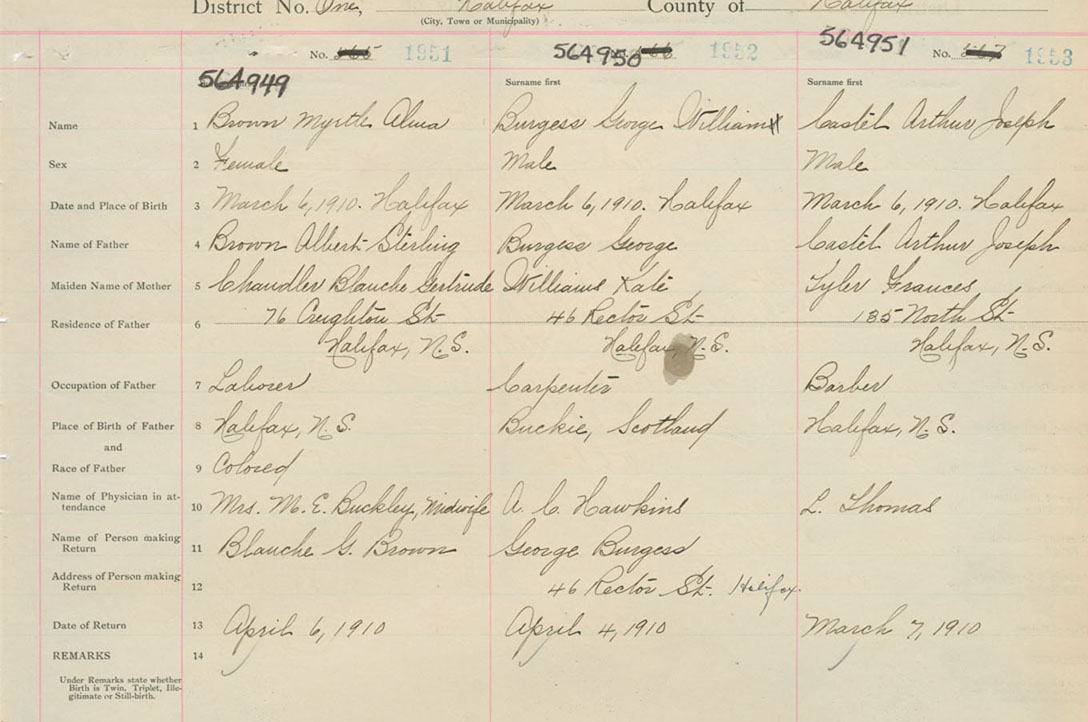 District No. One, Halifax County of Halifax
(City, Town or Municipality)
No. 1951 564950 1952 564951 No. 1953
564949
Surname first Surname first
Name 1 Brown Myrtle Alma Burgess George William Castel Arthur Joseph
Sex 2 Female Male Male
Date and Place of Birth 3 March 6, 1910. Halifax March 6, 1910. Halifax March 6, 1910. Halifax
Name of Father 4 Brown Albert Sterling Burgess George Castel Arthur Joseph
Maiden Name of Mother 5 Chandler Blanche Gertrude Williams Kate Tyler Frances
Residence of Father 6 76 Creighton St 46 Rector St 135 North St
Halifax, N.S. Halifax, N.S. Halifax, N.S.
Occupation of Father 7 Laborer Carpenter Barber
Place of Birth of Father 8 Halifax, N.S. Buckie, Scotland Halifax, N.S.
and
Race of Father 9 Colored
Name of Physician in at-
tendance 10 Mrs. M. E. Buckley, Midwife A. C. Hawkins L. Thomas
Name of Person making
Return 11 Blanche G. Brown George Burgess
Address of Person making
Return 12 46 Rector St. Halifax.
Date of Return 13 April 6, 1910 April 4, 1910 March 7, 1910
REMARKS 14
Under Remarks state whether
Birth is Twin, Triplet, Ille-
gitimate or Still-birth.